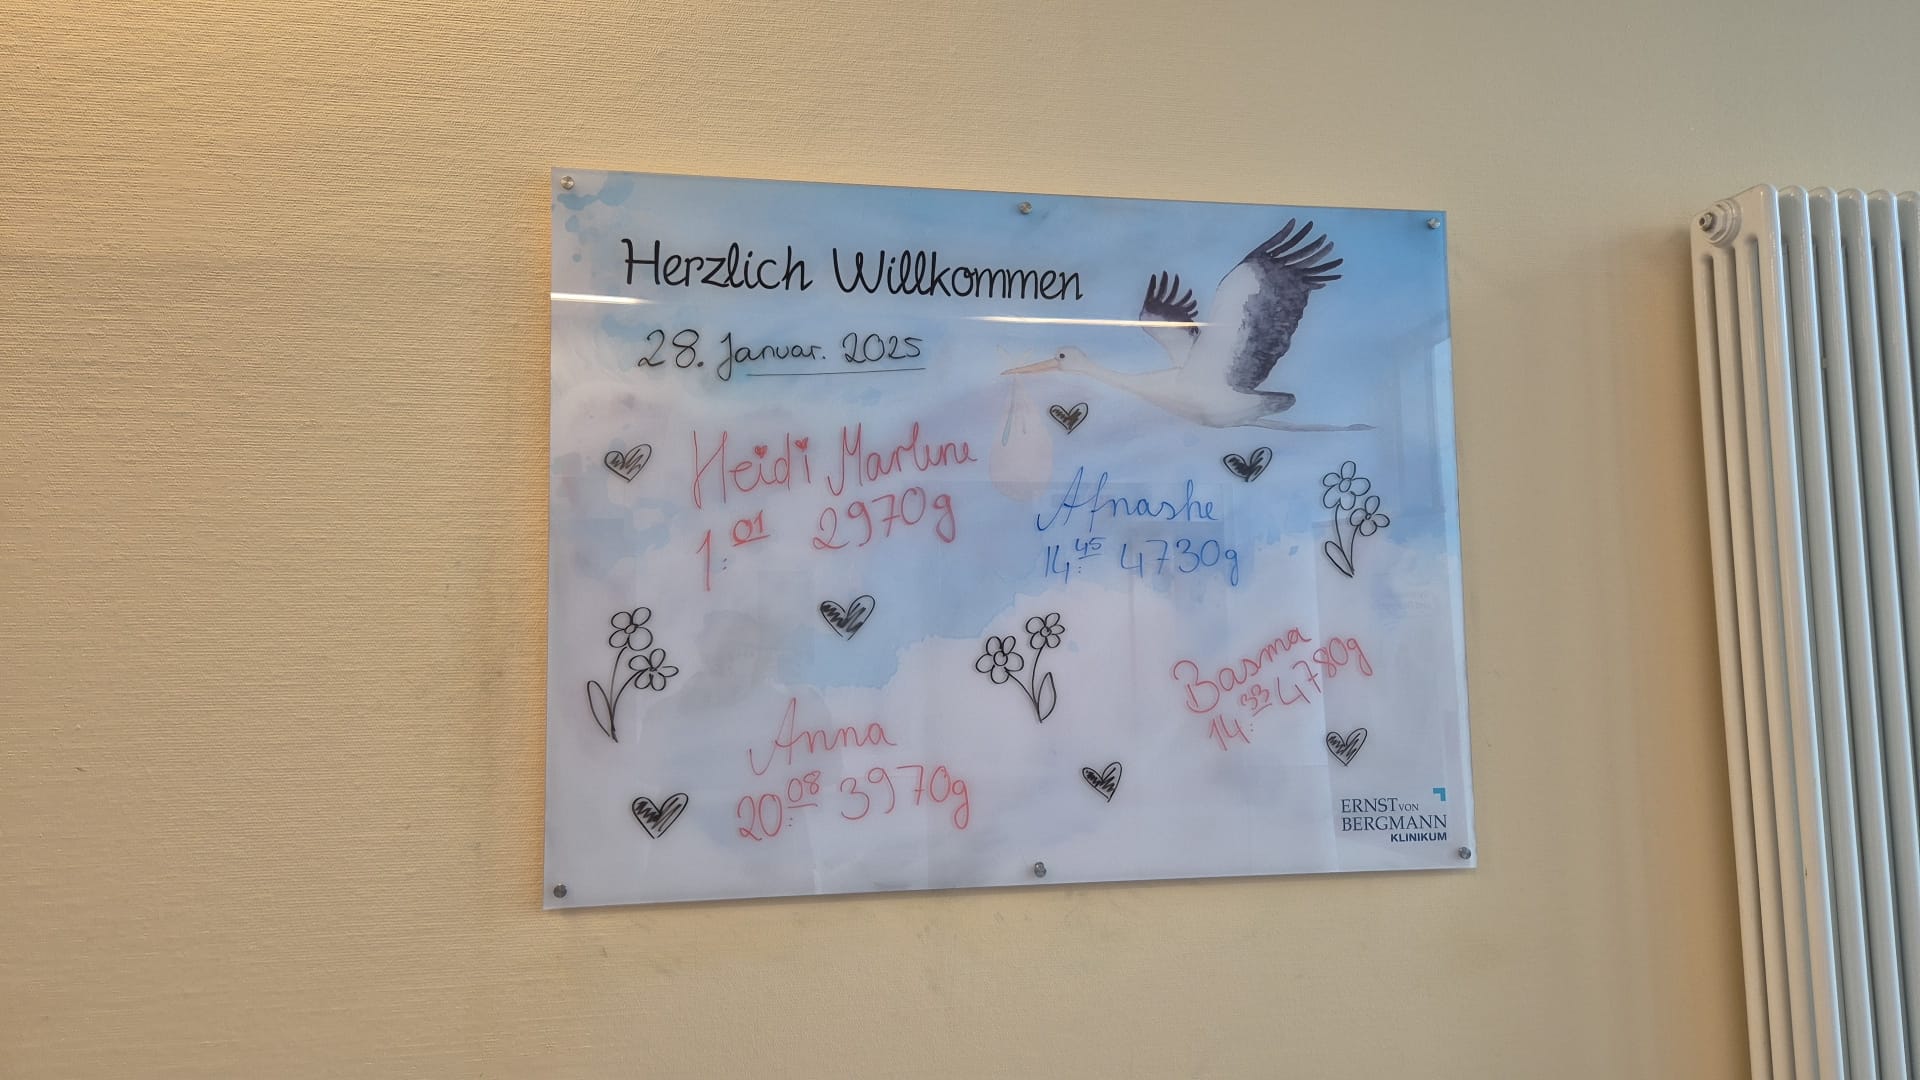 Herzlich Willkommen
28. Januar. 2025
Heidi Marlene
1:01 2970g
Afnashe
14:45 4730g
Basma
14:33 4780g
Anna
20:08 3970g
ERNST VON
BERGMANN
KLINIKUM